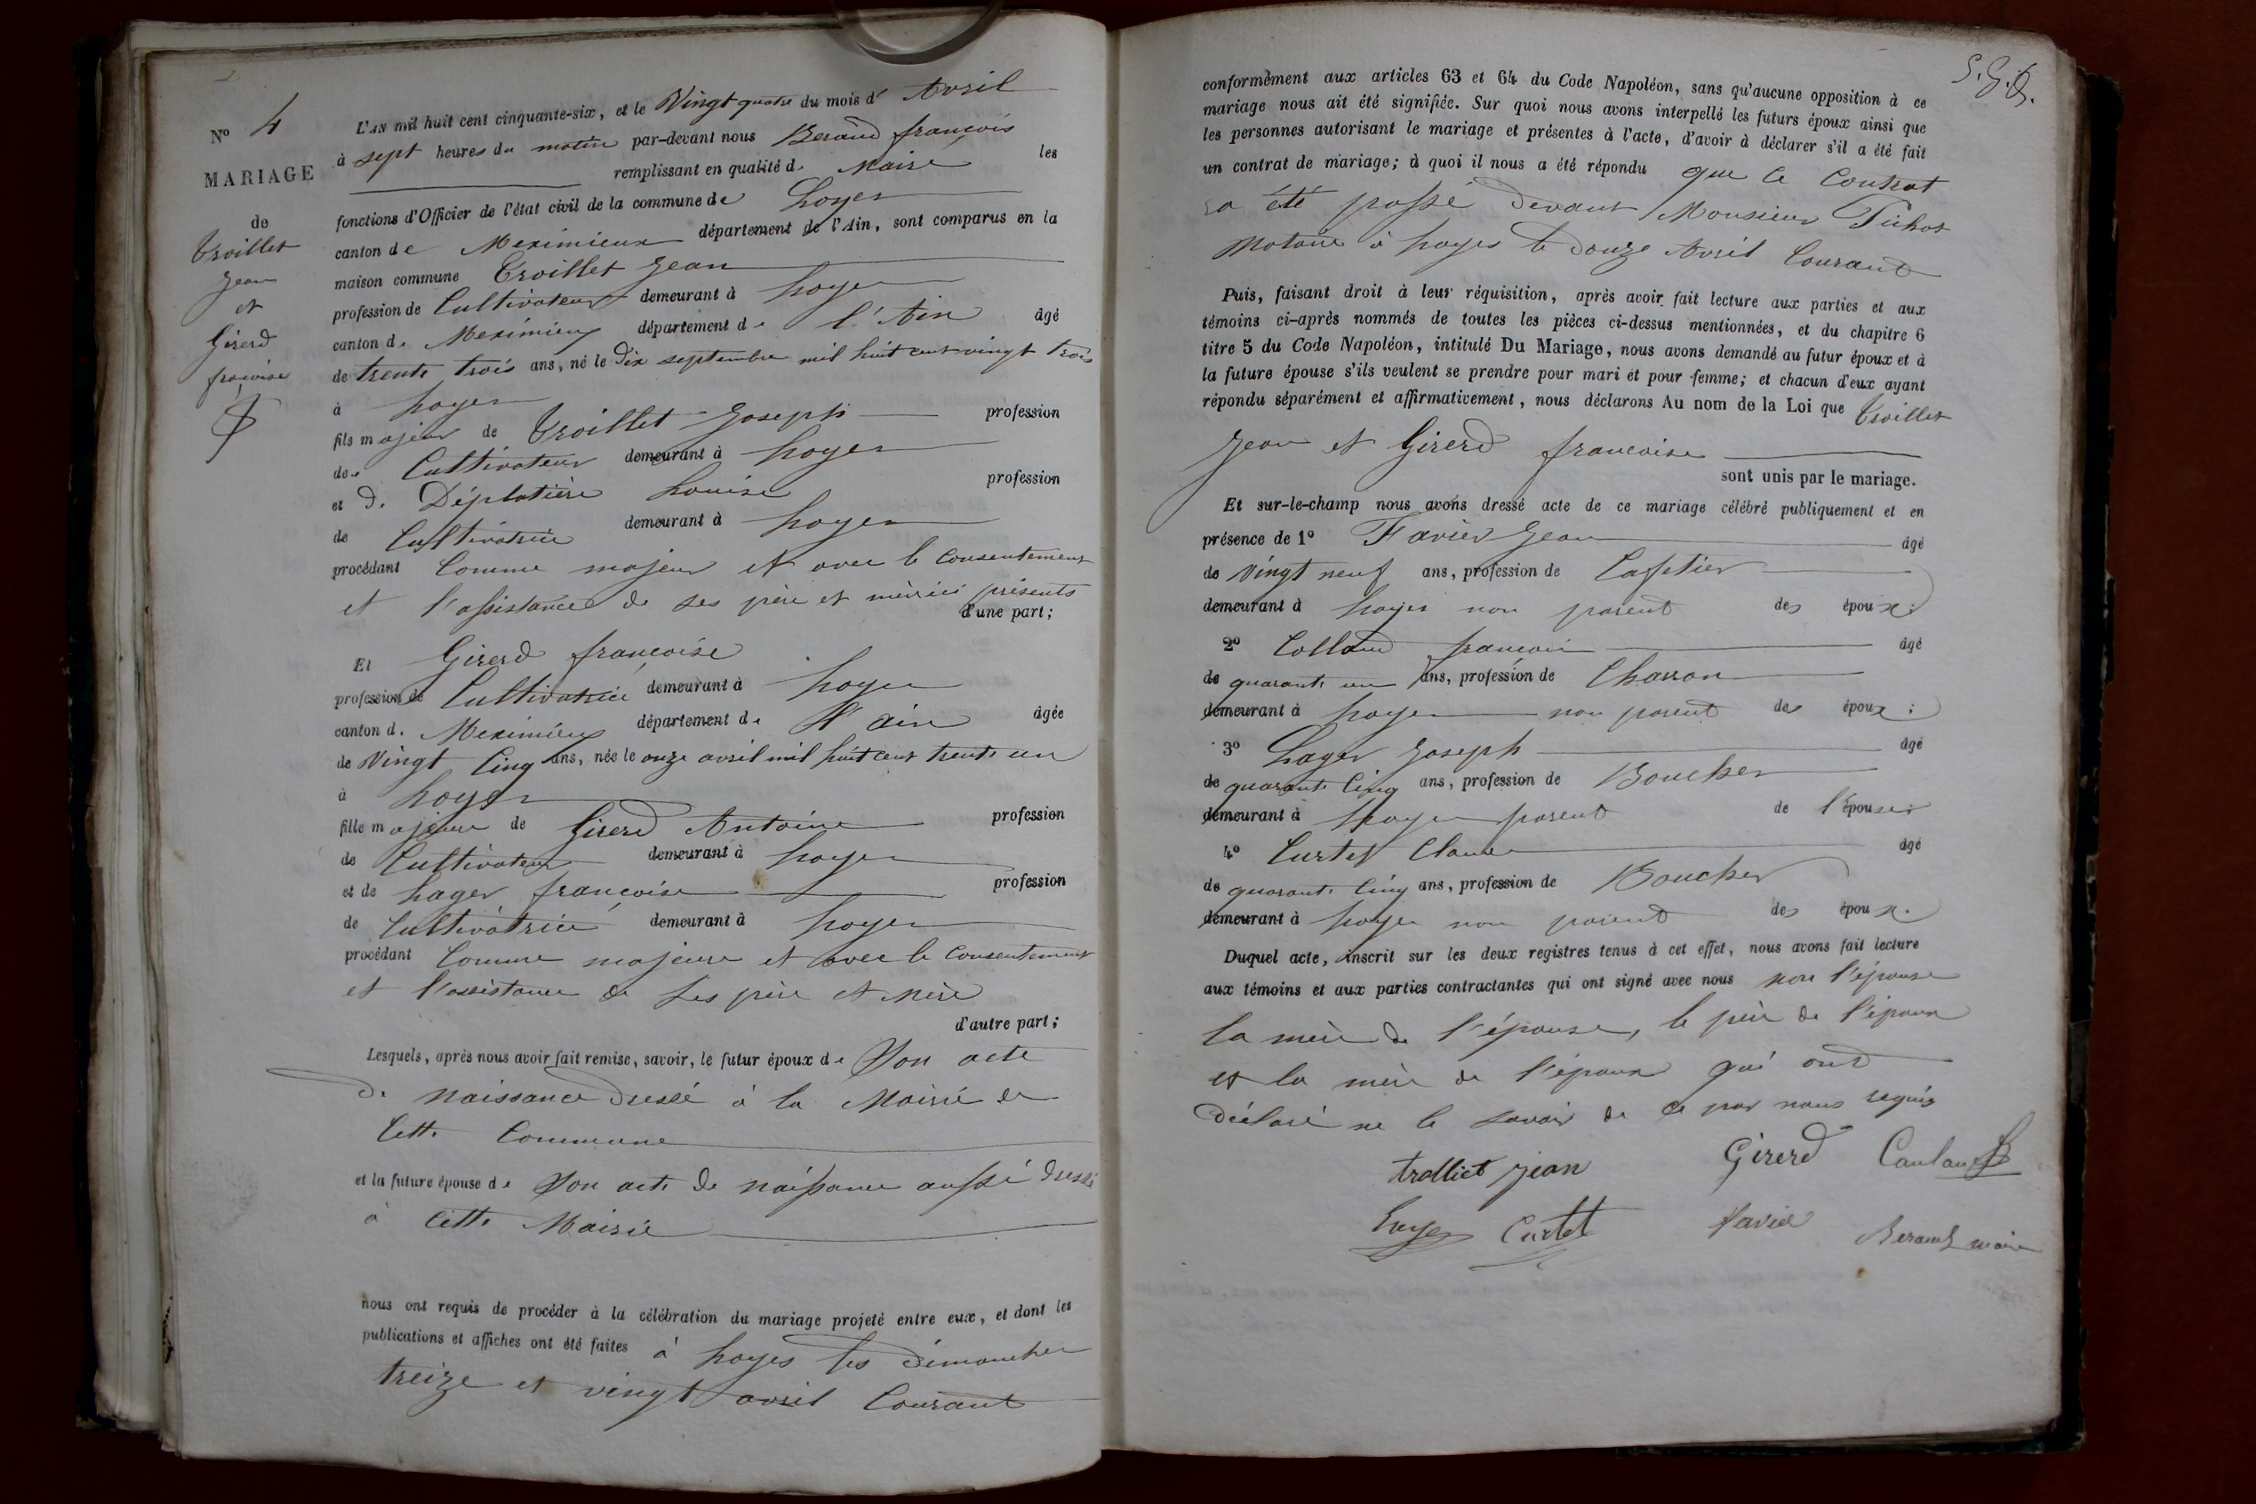 N° 4
MARIAGE
de
Troillet
Jean
et
Girerd
françoise
L'AN mil huit cent cinquante-six, et le Vingt quatre du mois d' Avril
à sept heures du matin par-devant nous Beraud françois
remplissant en qualité de Maire les
fonctions d'Officier de l'état civil de la commune de Loyes
canton de Meximieux département de l'Ain, sont comparus en la
maison commune Troillet Jean
profession de Cultivateur demeurant à Loyes
canton de Meximieux département de l'Ain âgé
de trente trois ans, né le dix septembre mil huit cent vingt trois
à Loyes
fils majeur de Troillet Joseph profession
de Cultivateur demeurant à Loyes
et de Déplatière Louise profession
de Cultivatrice demeurant à Loyes
procédant Comme majeur et avec le consentement
et l'assistance de ses père et mère ici présents
d'une part;
Et Girerd françoise
profession de Cultivatrice demeurant à Loyes
canton de Meximieux département de l'ain âgée
de Vingt Cinq ans, née le onze avril mil huit cent trente un
à Loyes
fille majeure de Girerd Antoine profession
de Cultivateur demeurant à Loyes
et de Lager françoise profession
de Cultivatrice demeurant à Loyes
procédant Comme majeure et avec le consentement
et l'assistance de ses père et mère
d'autre part;
Lesquels, après nous avoir fait remise, savoir, le futur époux de Son acte
de naissance dressé à la Mairie de
Cette Commune
et la future épouse de Son acte de naissance aussi dressé
à Cette Mairie
nous ont requis de procéder à la célébration du mariage projeté entre eux, et dont les
publications et affiches ont été faites à Loyes les dimanches
treize et vingt avril Courant
conformément aux articles 63 et 64 du Code Napoléon, sans qu'aucune opposition à ce
mariage nous ait été signifiée. Sur quoi nous avons interpellé les futurs époux ainsi que
les personnes autorisant le mariage et présentes à l'acte, d'avoir à déclarer s'il a été fait
un contrat de mariage; à quoi il nous a été répondu que le Contrat
a été passé devant Monsieur Pichot
Notaire à Loyes le douze Avril Courant
Puis, faisant droit à leur réquisition, après avoir fait lecture aux parties et aux
témoins ci-après nommés de toutes les pièces ci-dessus mentionnées, et du chapitre 6
titre 5 du Code Napoléon, intitulé Du Mariage, nous avons demandé au futur époux et à
la future épouse s'ils veulent se prendre pour mari et pour femme; et chacun d'eux ayant
répondu séparément et affirmativement, nous déclarons Au nom de la Loi que Troillet
Jean et Girerd françoise
sont unis par le mariage.
Et sur-le-champ nous avons dressé acte de ce mariage célébré publiquement et en
présence de 1° Favier Jean âgé
de Vingt neuf ans, profession de Cafetier
demeurant à Loyes non parent des époux;
2° Colland françois âgé
de quarante un ans, profession de Charron
demeurant à Loyes non parent des époux;
3° Lager Joseph âgé
de quarante Cinq ans, profession de Boucher
demeurant à Loyes parent de l'épouse;
4° Curtet Claude âgé
de quarante Cinq ans, profession de Boucher
demeurant à Loyes non parent des époux.
Duquel acte, inscrit sur les deux registres tenus à cet effet, nous avons fait lecture
aux témoins et aux parties contractantes qui ont signé avec nous non l'épouse
la mère de l'épouse, le père de l'époux
et la mère de l'époux qui ont
déclaré ne le savoir de ce par nous requis
trolliet jean Girerd
Curtet favier Beraud maire